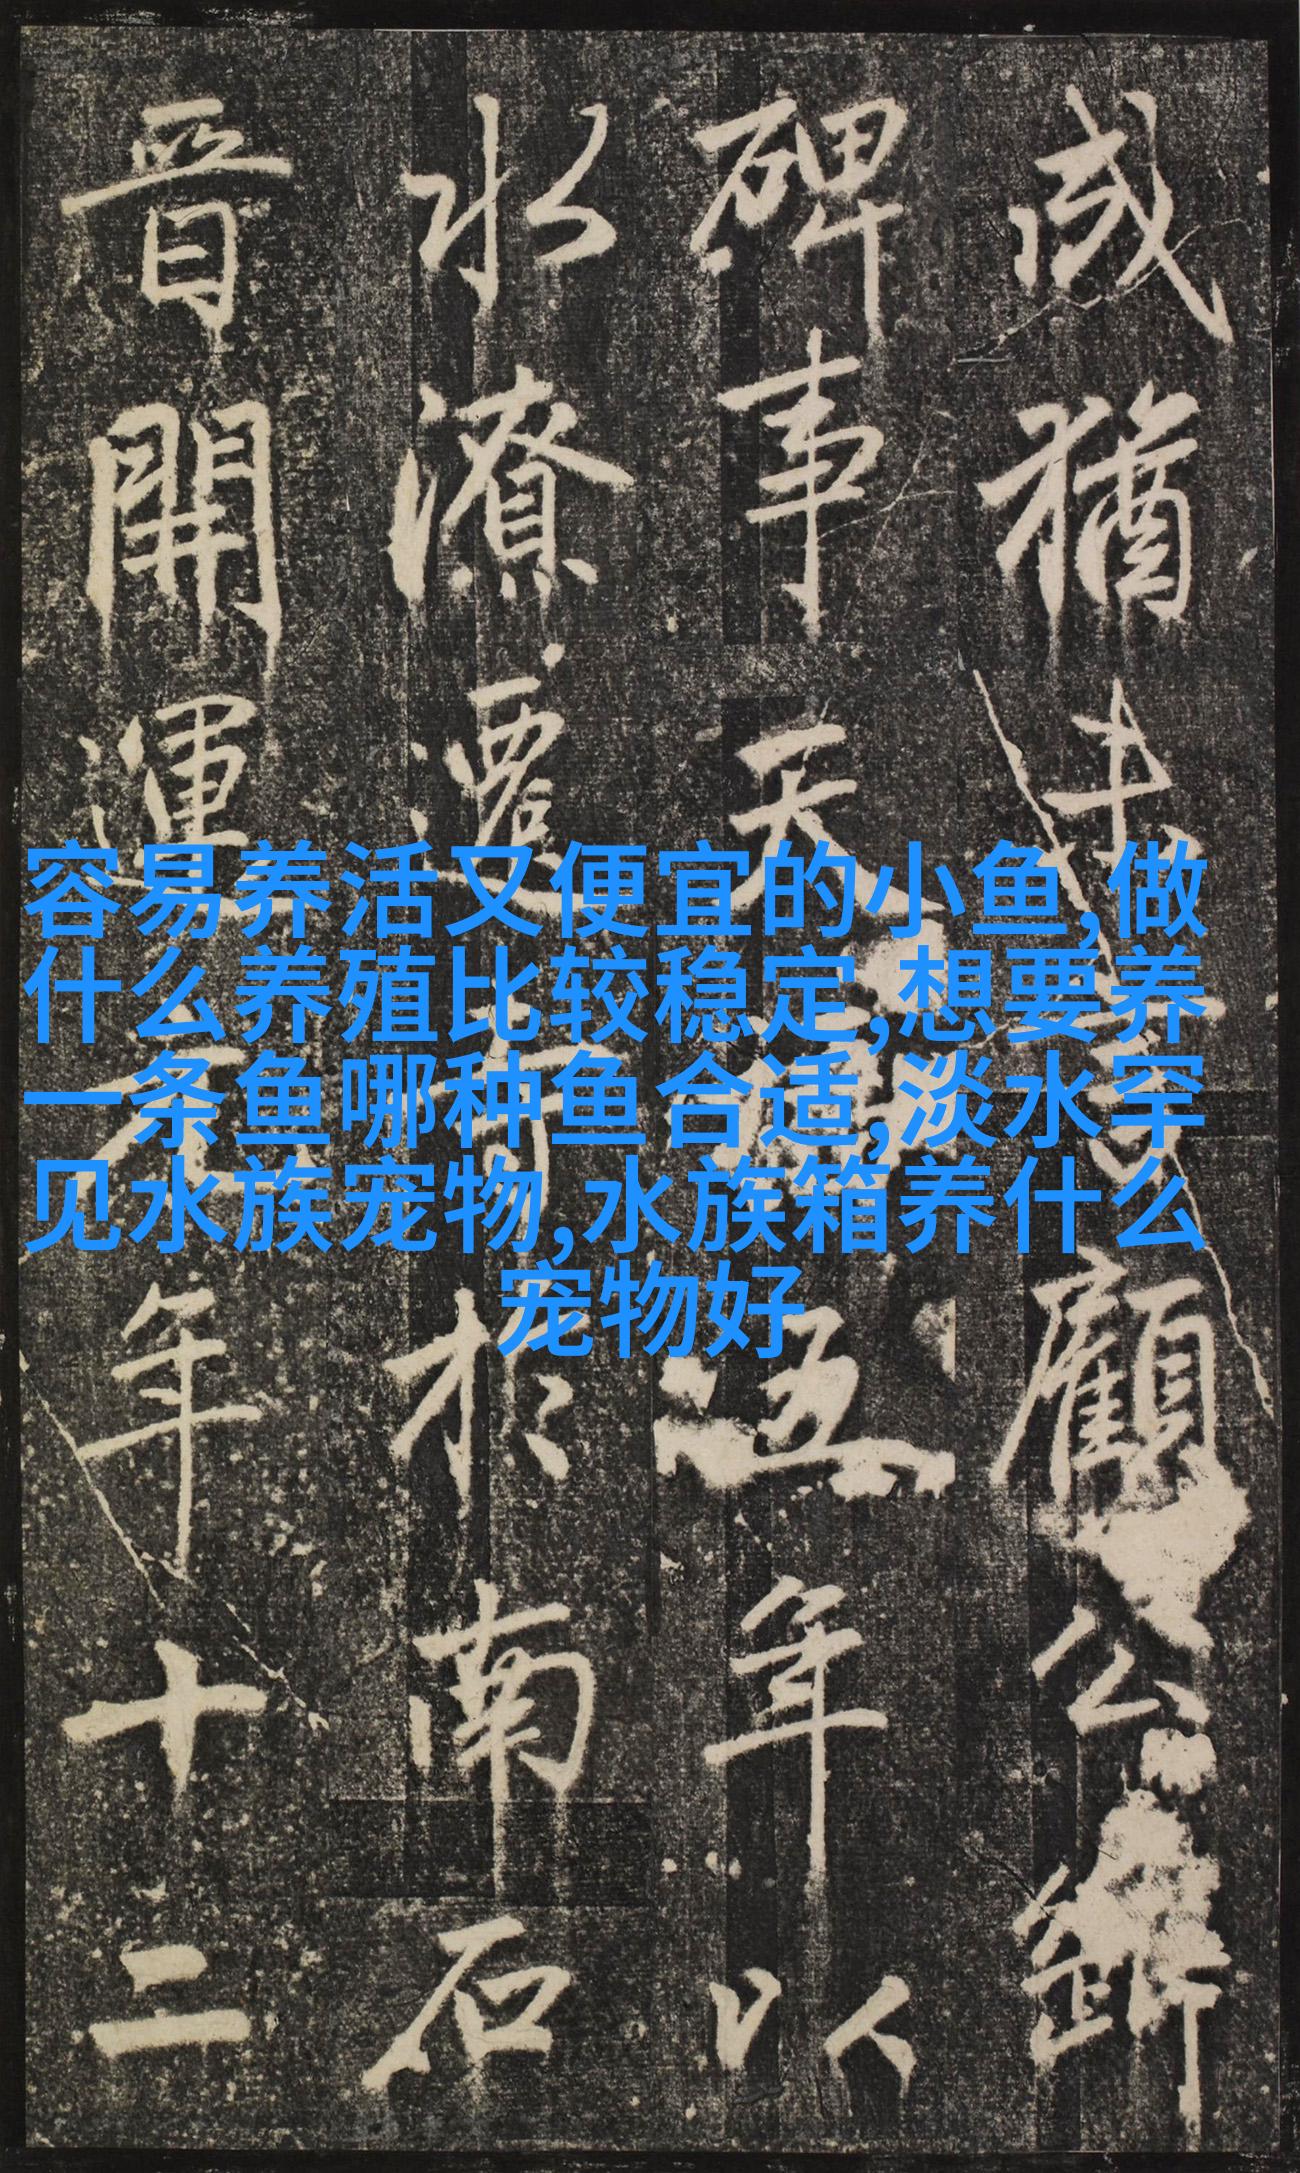 容易养活又便宜的小鱼,做
什么养殖比较稳定,想要养
一条鱼哪种鱼合适,淡水罕
见水族宠物,水族箱养什么
宠物好
咸猶未顧公
碑事天福五年以
水潦遷於南石
晉開運元年十二